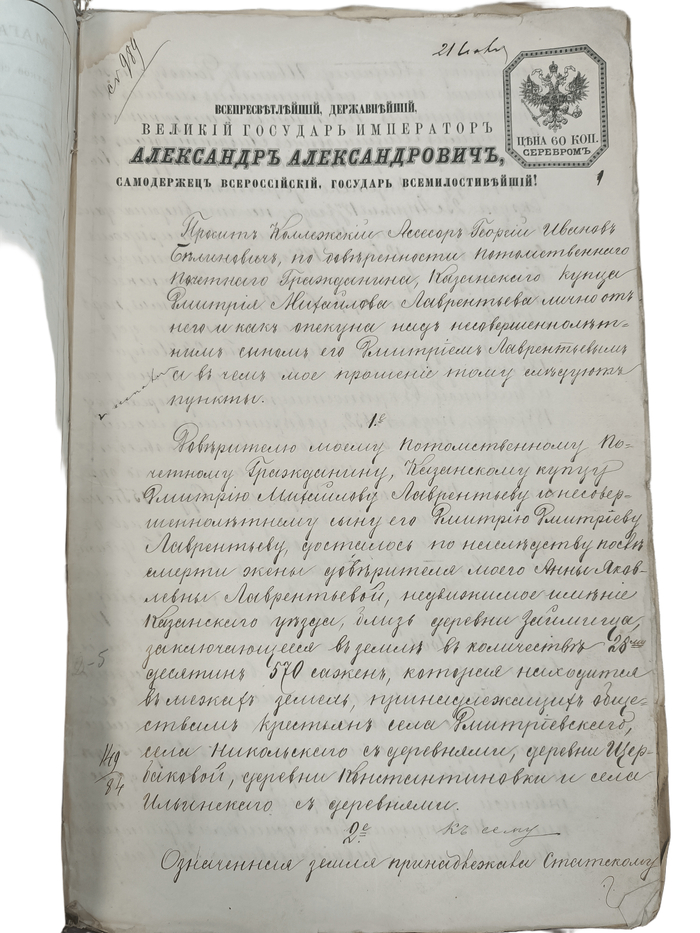 № 989
ВСЕПРЕСВѢТЛѢЙШІЙ, ДЕРЖАВНѢЙШІЙ,
ВЕЛИКІЙ ГОСУДАРЬ ИМПЕРАТОРЪ
АЛЕКСАНДРЪ АЛЕКСАНДРОВИЧЪ,
САМОДЕРЖЕЦЪ ВСЕРОССІЙСКІЙ, ГОСУДАРЬ ВСЕМИЛОСТИВѢЙШІЙ!
ЦѢНА 60 КОП.
СЕРЕБРОМЪ
Проситъ Коллежскій Асесоръ Георгій Ивановъ
по довѣренности потомственнаго
почетнаго Гражданина, Казанскаго купца
Дмитрія Михайлова Лаврентьева лично отъ
него и какъ опекуна надъ несовершеннолѣт=
нимъ сыномъ его Дмитріемъ Лаврентьевымъ
а въ чемъ мое прошеніе тому слѣдуютъ
пункты.
1е
Довѣрителю моему потомственному По=
четному Гражданину, Казанскому купцу
Дмитрію Михайлову Лаврентьеву и несовер=
шеннолѣтнему сыну его Дмитрію Дмитріеву
Лаврентьеву, досталось по наслѣдству послѣ
смерти жены довѣрителя моего Анны Яков=
левны Лаврентьевой, недвижимое имѣніе
Казанскаго уѣзда, близъ деревни Займища,
заключающееся въ землѣ въ количествѣ 28
десятинъ 570 сажень, которая находится
въ межахъ земель, принадлежащихъ обще=
ствамъ крестьян села Дмитріевскаго,
села Никольскаго съ деревнями, деревни Щер=
баковой, деревни Константиновки и села
Ильинскаго съ деревнями.
149
84
2е
къ сему
Означенная земля принадлежала Статскому